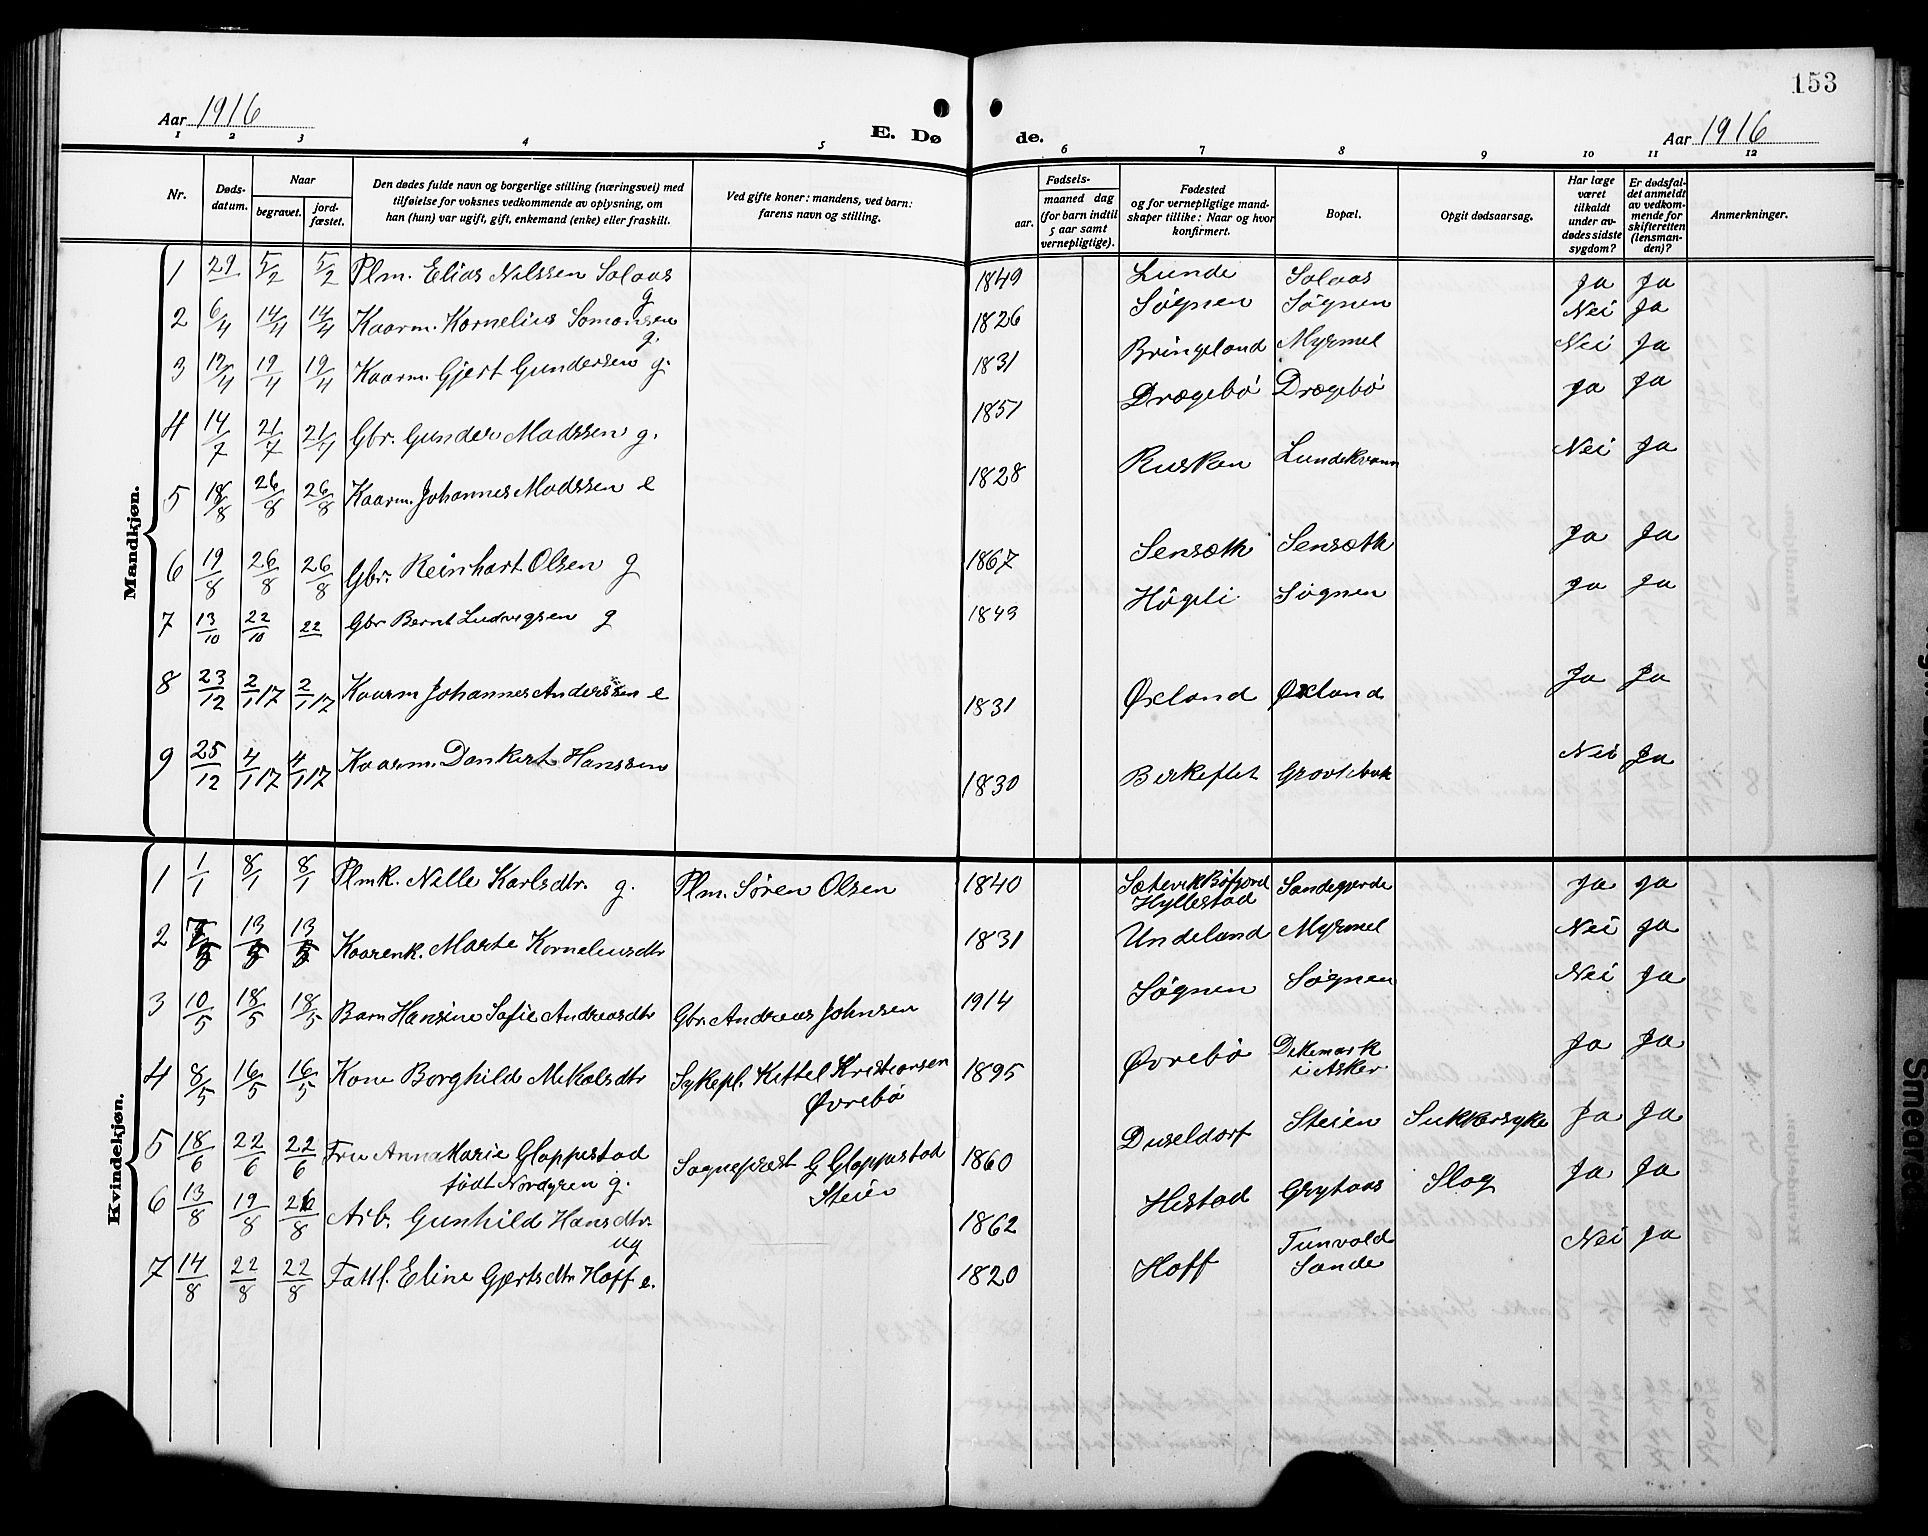 153
Aar 1916
E. Dø de.
Aar 1916
1 2 3 4 5 6 7 8 9 10 11 12
Nr.
Døds-
datum.
Naar
begravet.
jord-
fæstet.
Den dødes fulde navn og borgerlige stilling (næringsvei) med
tilføielse for voksnes vedkommende av oplysning, om
han (hun) var ugift, gift, enkemand (enke) eller fraskilt.
Ved gifte koner: mandens, ved barn:
farens navn og stilling.
Fødsels-
aar.
maaned dag
(for barn indtil
5 aar samt
vernepligtige).
Fødested
og for vernepligtige mand-
skaper tillike: Naar og hvor
konfirmert.
Bopæl.
Opgit dødsaarsag.
Har læge
været
tilkaldt
under av-
dødes sidste
sygdom?
Er dødsfal-
det anmeldt
av vedkom-
mende for
skifteretten
(lensman-
den)?
Anmerkninger.
Mandkjøn.
1 29 5/2 5/2 Plm. Elias Nilssen Solaas g 1849 Lunde Solaas Ja Ja
2 6/4 14/4 14/4 Kaarm. Kornelius Somonsen g. 1826 Søgnen Søgnen Nei Ja
3 12/4 19/4 19/4 Kaarm. Gjert Gundersen g. 1831 Bringeland Myrmel Nei Ja
4 14/7 21/7 21/7 Gbr. Gunder Madssen g. 1851 Drægebø Drægebø Ja Ja
5 18/8 26/8 26/8 Kaarm. Johannes Madssen e 1828 Rusken Lundekvam Nei Ja
6 19/8 26/8 26/8 Gbr. Reinhart Olsen g 1867 Sensæth Sensæth Ja Ja
7 13/10 22/10 22 Gbr Bernt Ludvigsen g 1843 Høgeli Søgnen Ja Ja
8 23/12 2/1 17 2/1 17 Kaarm Johannes Anderssen e 1831 Øxland Øxland Ja Ja
9 25/12 4/1 17 4/1 17 Kaarm. Dankert Hanssen 1830 Birkeflet Nei Ja
Kvindekjøn.
1 1/1 8/1 8/1 Plmk. Nille Karlsdtr. g. Plm. Søren Olsen 1840 Sætevik Bøfjord
Hyllestad Sandegjerde Ja Ja
2 13 13 Kaarenk. Marte Korneliusdtr 1831 Undeland Myrmel Nei Ja
3 10/5 18/5 18/5 Barn Hansine Sofie Andreasdtr Gbr. Andreas Johnsen 1914 Søgnen Søgnen Nei Ja
4 8/5 16/5 16/5 Kone Borghild Mikalsdtr Sykepl. Kittel Kristiansen
Øvrebø 1895 Øvrebø Dikemark
i Asker Ja Ja
5 18/6 22/6 22/6 Fru Anna Marie Gloppestad
født Nordgren g. Sogneprest G Gloppestad
Steien 1860 Duseldorf Steien Sukkersyke Ja Ja
6 13/8 19/8 21/8 Arb. Gunhild Hansdtr. ug 1862 Hestad Grytaas Slag Ja Ja
7 14/8 22/8 22/8 Fattl. Eline Gjertsdtr Hoff e. 1820 Hoff Tunvald
Sande Nei Ja
Smeared